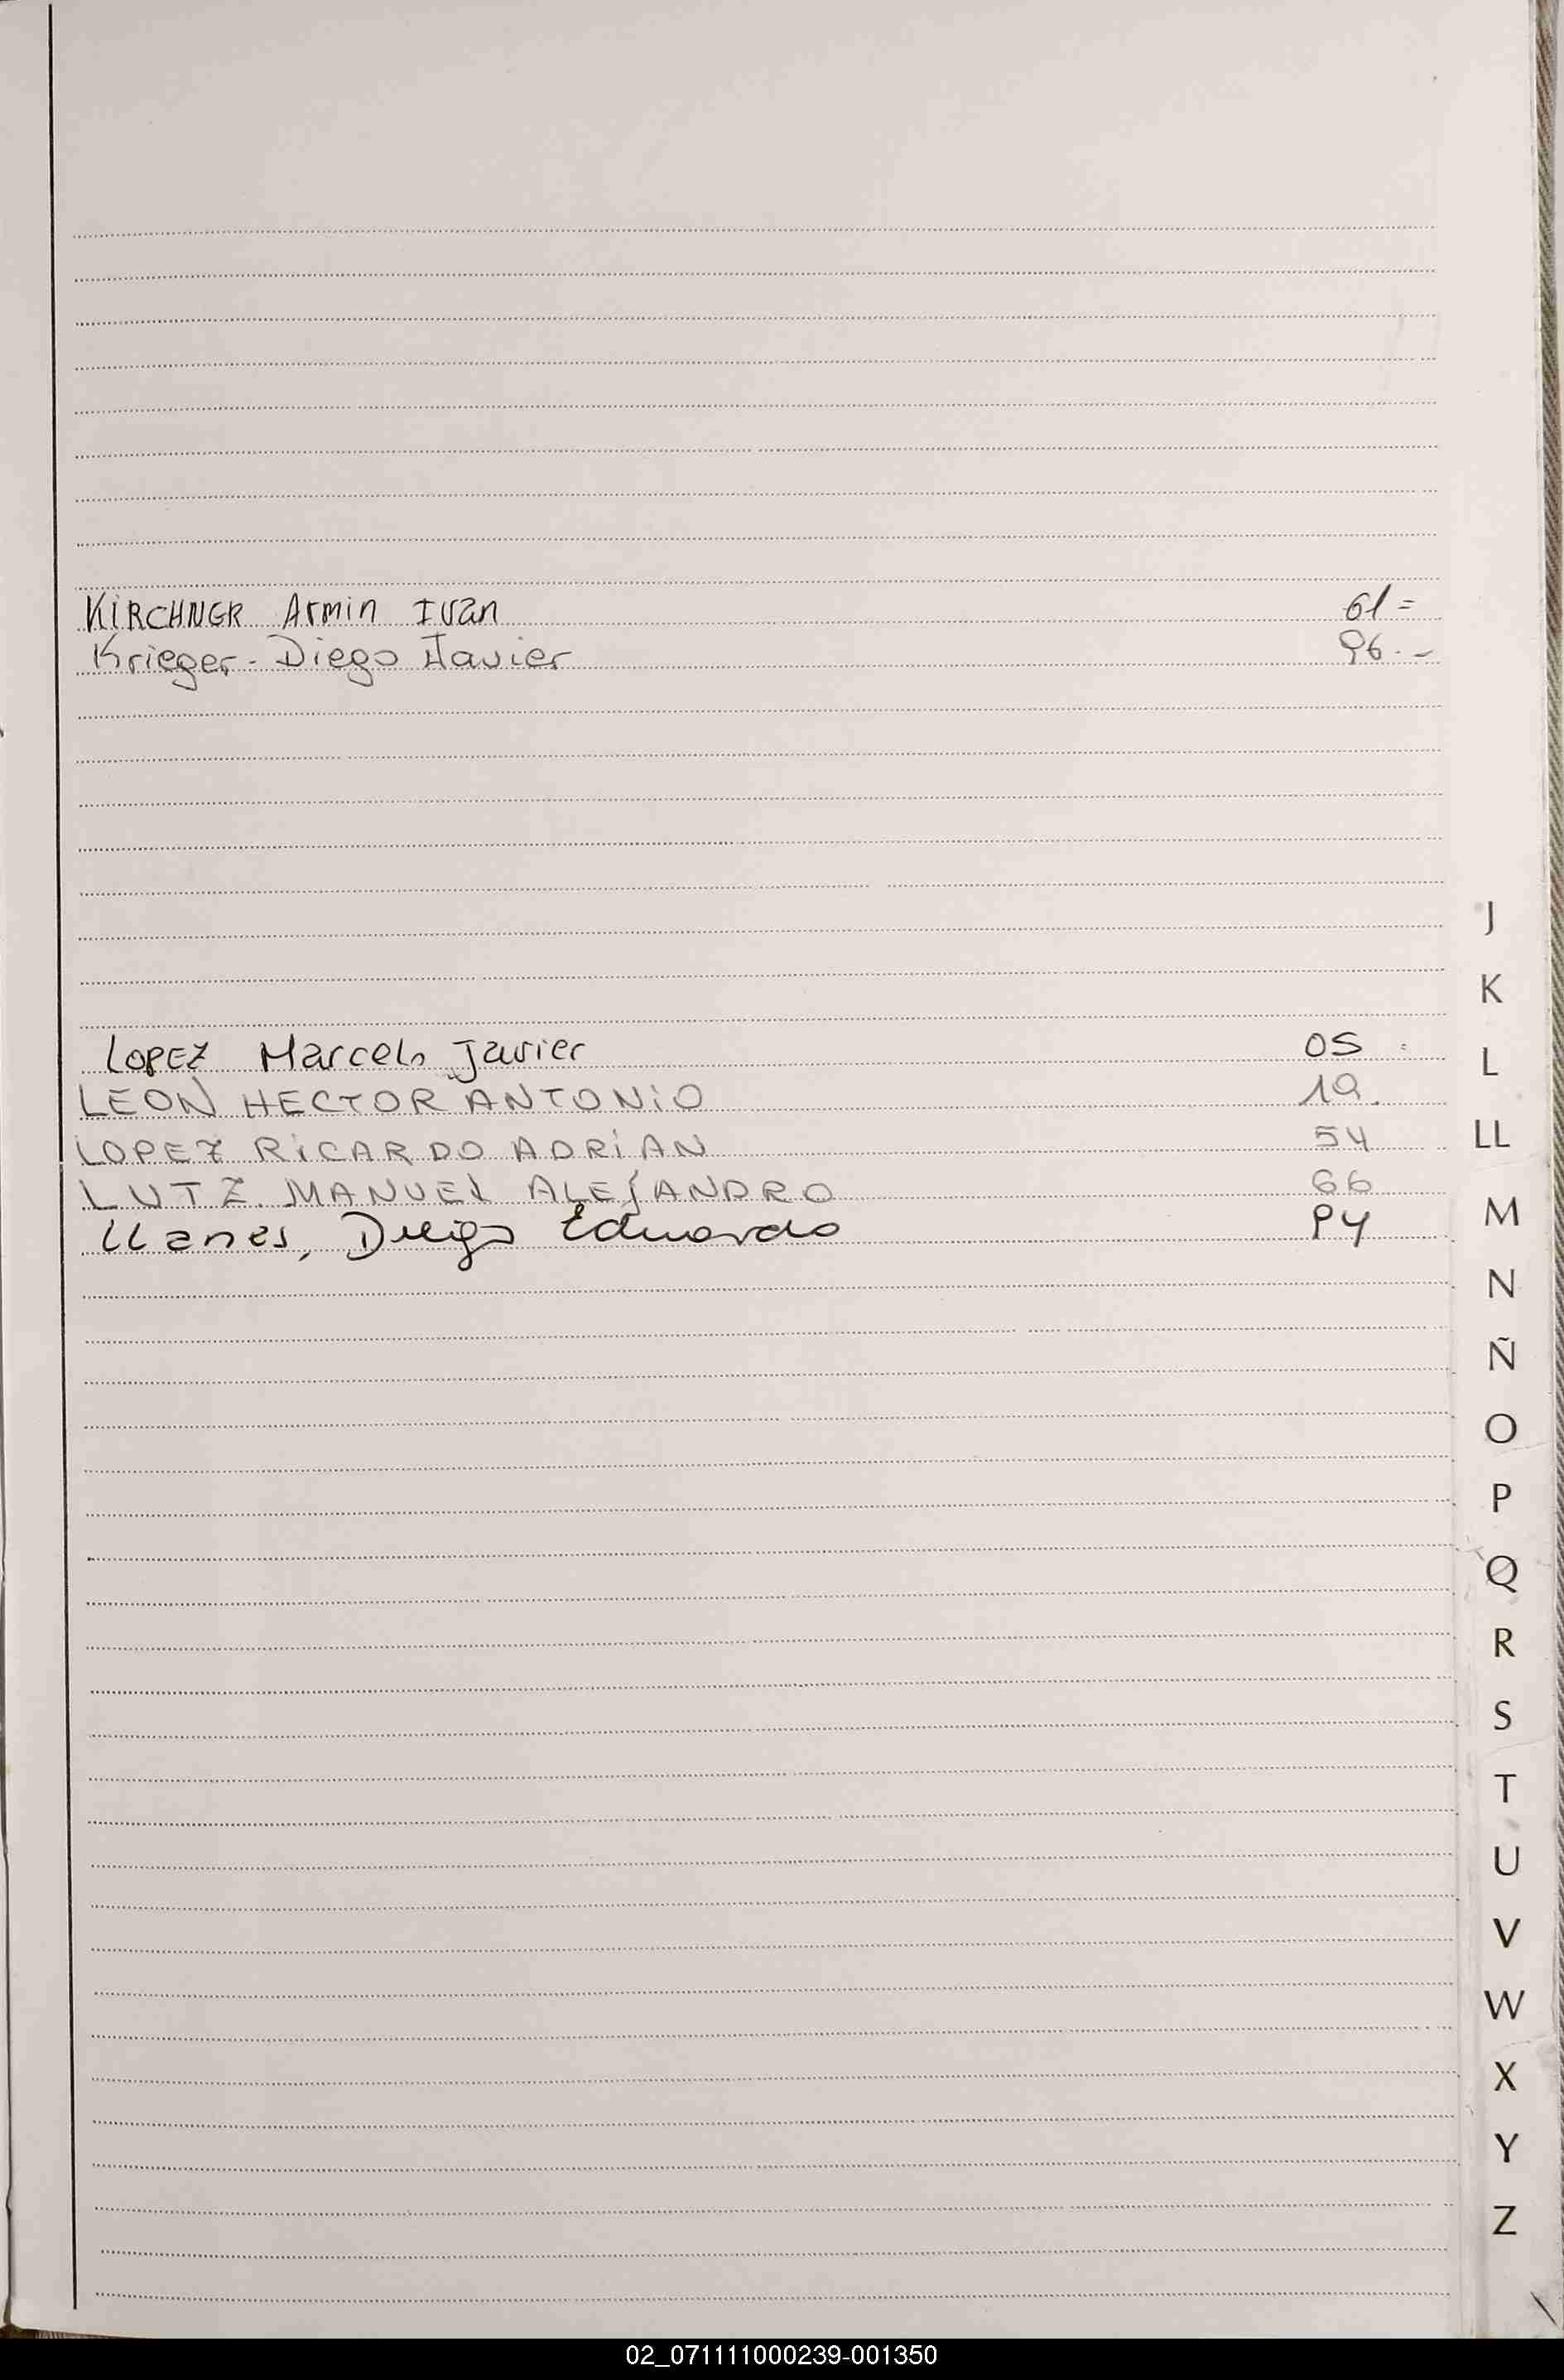 KIRCHNER Armin Ivan 61=
Krieger - Diego Javier 96.-
J
K
LOPEZ Marcelo Javier 05
L
LEON HECTOR ANTONIO 19.
LOPEZ RICARDO ADRIAN 54
LL
LUTZ MANUEL ALEJANDRO 66
M
LLanes, Diego Eduardo 94
N
Ñ
O
P
Q
R
S
T
U
V
W
X
Y
Z
02_071111000239-001350